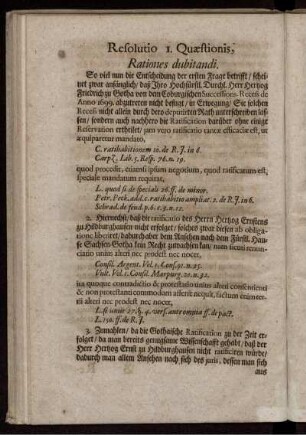 Resolutio 1. Quæstionis,
Rationes dubitandi.
So viel nun die Entscheidung der ersten Frage betrifft/ schei-
net zwar anfänglich/ daß Ihro Hochfürstl. Durchl. Herr Hertzog
Friedrich zu Gotha von dem Coburgischen Successions-Recess de
Anno 1699. abzutreten nicht befugt/ in Erwegung: Sie solchen
Recess nicht allein durch dero deputirten Rath unterschreiben las-
sen/ sondern auch nachhero die Ratification darüber ohne einige
Reservation ertheilet/ jam vero ratificatio tantæ efficaciæ est, ut
æquiparetur mandato,
C. ratihabitionum 10. de R. J. in 6.
Carpz. Lib. 5. Resp. 76. n. 19.
quod procedit, etiamsi ipsum negotium, quod ratificatum est,
speciale mandatum requirat,
L. quod si de speciale 26. ff. de minor.
Petr. Peck. ad d. c. ratihabitio ampliat. 2. de R. J. in 6.
Schrad. de feud. p. 6. c. 3. n. 12.
2. Hiernechst/ daß die ratification des Herrn Hertzog Ernstens
zu Hildburghausen nicht erfolget/ solches zwar diesen ab obliga-
tione liberiret/ dadurch aber dem Ansehen nach dem Fürstl. Hau-
se Sachsen-Gotha kein Recht zuwachsen kan/ nam sicuti renun-
ciatio unius alteri nec prodest nec nocet,
Consil. Argent. Vol. 1. Conf. 91. n. 25.
Vult. Vol. 1. Consil. Marpurg. 20. n. 92.
ita quoque contradictio & protestatio unius alteri consentienti
& non protestanti commodum afferre nequit, factum enim ter-
tii alteri nec prodest nec nocet,
L. si unus 27. §. 4. vers. ante omnia ff. de pact.
L. 150. ff. de R. J.
3. Zumahlen/ da die Gothaische Ratification zu der Zeit er-
folget/ da man bereits genugsame Wissenschafft gehabt/ daß der
Herr Hertzog Ernst zu Hildburghausen nicht ratificiren würde/
dadurch man allem Ansehen nach sich des juris, dessen man sich
aus